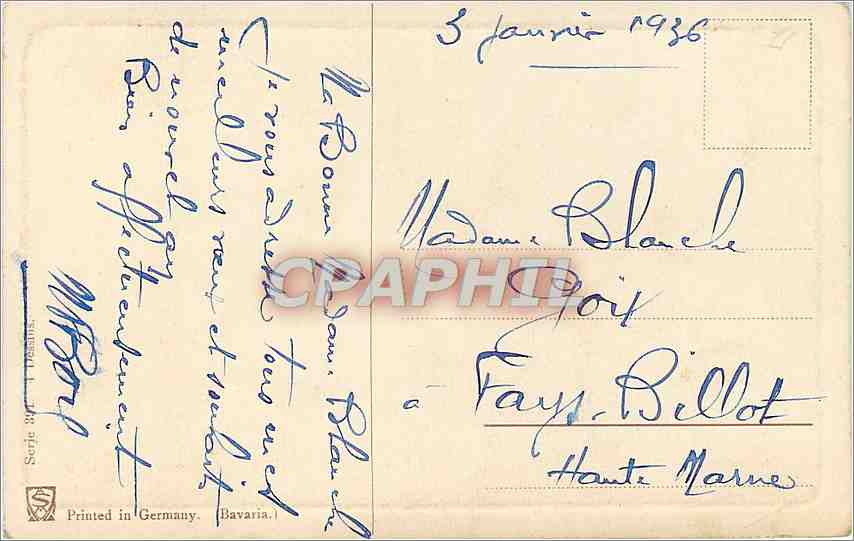 3 Janvier 1936
Ma Bonne Madame Blanche
Je vous adresse tous mes
meilleurs vœux et souhaits
de nouvel an
Bien affectueusement
Madame Blanche
Goix
à Fays-Billot
Haute Marne
CPARPHIL
Serie 391. 4 Dessins.
Printed in Germany. (Bavaria.)